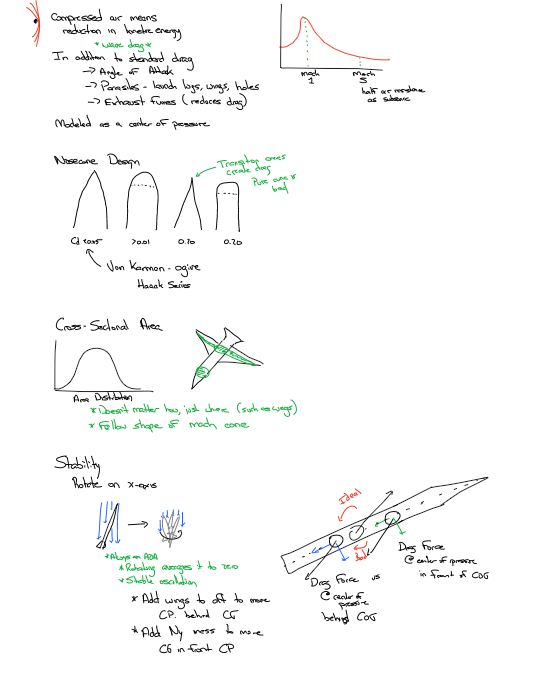 Compressed air means
reduction in kinetic energy
* wave drag *
In addition to standard drag
-> Angle of Attack
-> Parasites - launch lugs, wings, holes
-> Exhaust fumes (reduces drag)
Modeled as a center of pressure
mach
1
Mach
5
half air resistance
as subsonic
Nosecone Design
Transition ones
create drag
Pure cone is
bad
Cd <0.05
>0.01
0.20
0.20
Von Karman - ogive
Haack Series
Cross-Sectional Area
Area Distribution
* Doesn't matter how, just where (such as wings)
* Follow shape of mach cone
Stability
Rotate on x-axis
* Always an AOA
* Rotating averages it to zero
* Stable oscillation
* Add wings to aft to move
CP. behind CG
* Add Ny mass to move
CG in front CP
Ideal
bad
Drag Force
@ center of
pressure
behind COG
vs
Drag Force
@ center of pressure
in front of COG